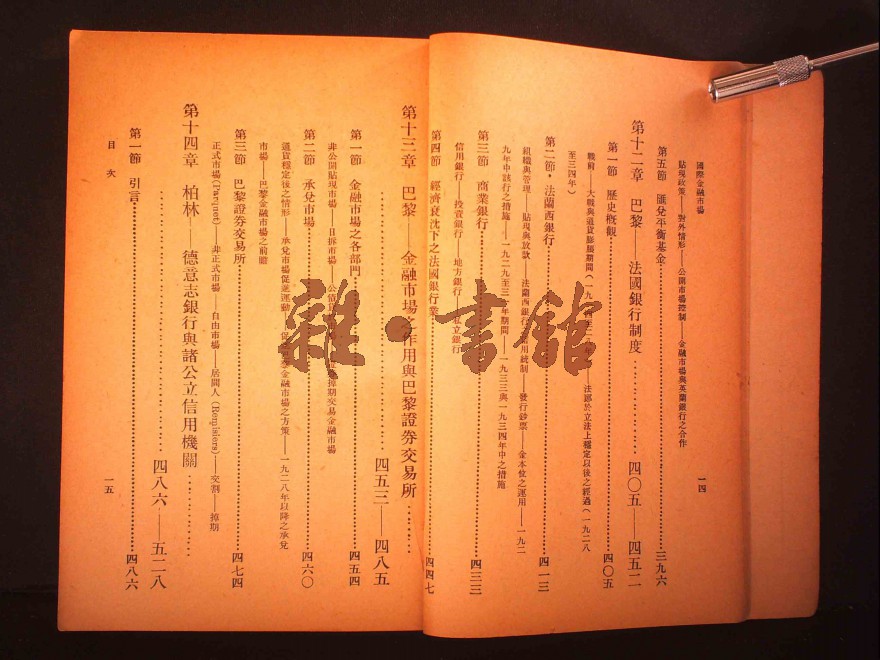 國際金融市場
一四
貼現政策——對外情形——公開市場控制——金融市場與英蘭銀行之合作
第五節 匯兌平衡基金……三九六
第十二章 巴黎——法國銀行制度……四〇五——四五二
第一節 歷史概觀……四〇五
戰前——大戰與通貨膨脹期間(一九一四至二 年) 法郎於立法上穩定以後之經過(一九二八
至三四年)
第二節 法蘭西銀行……四一三
組織與管理——貼現與放款——法蘭西銀行 信用統制——發行鈔票——金本位之運用——一九二
九年中該行之措施——一九二九至三二年期間——一九三三與一九三四年中之措施
第三節 商業銀行……四三三
信用銀行——投資銀行——地方銀行 立銀行
第四節 經濟衰沈下之法國銀行業……四四七
第十三章 巴黎——金融市場之作用與巴黎證券交易所……
……四五三——四八五
第一節 金融市場之各部門……四五四
非公開貼現市場——日拆市場——公債 掉期交易金融市場
第二節 承兌市場……四六〇
通貨穩定後之情形——承兌市場促進運動 促 金融市場之方策——一九二八年以降之承兌
市場——巴黎金融市場之前瞻
第三節 巴黎證券交易所……四七四
正式市場(Parquet) 非正式市場——自由市場——居間人(Remisiers)——交割——掉期
第十四章 柏林——德意志銀行與諸公立信用機關……
……四八六——五二八
第一節 引言……四八六
目次
一五
雜·書館